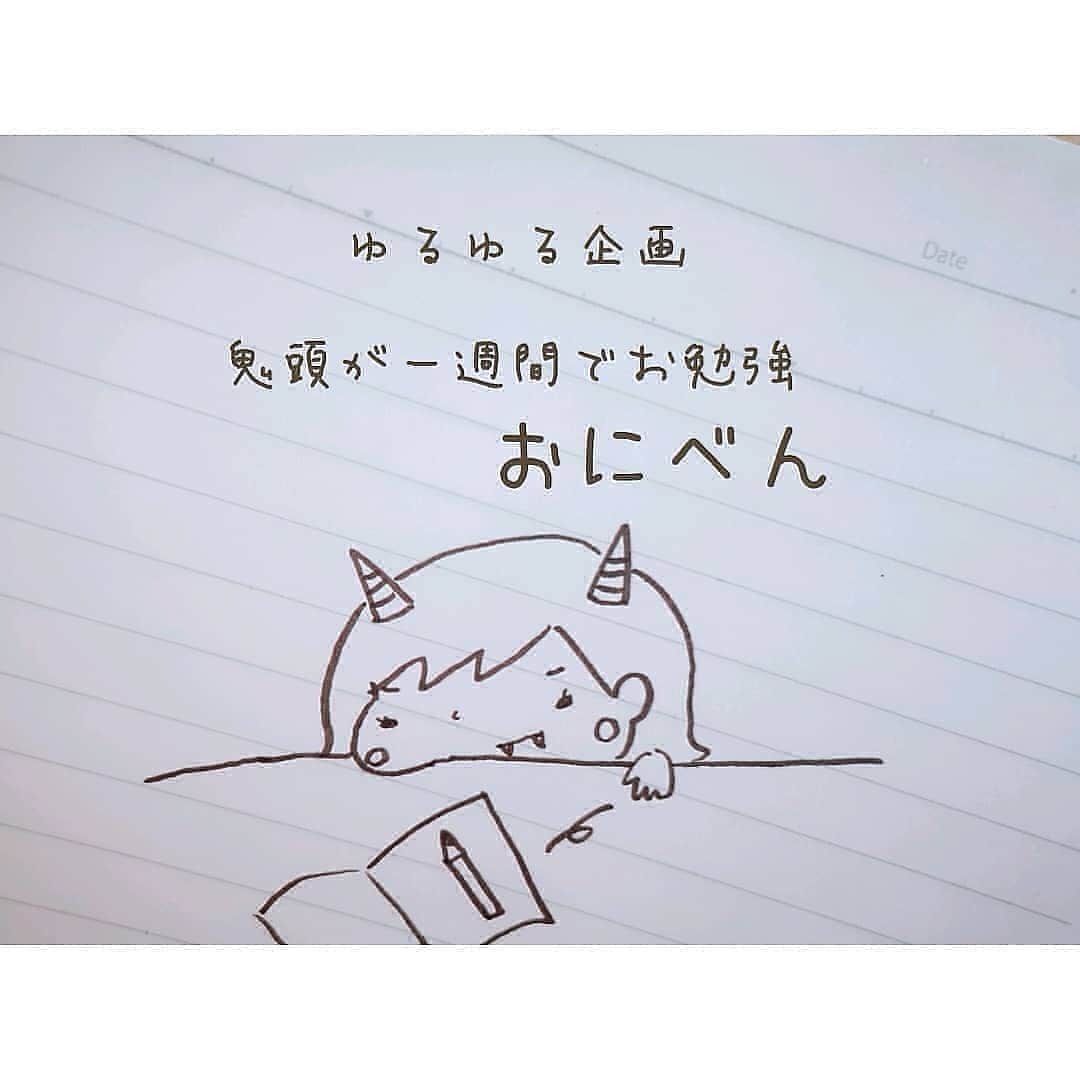 ゆるゆる企画
Date
鬼頭が一週間でお勉強
おにべん